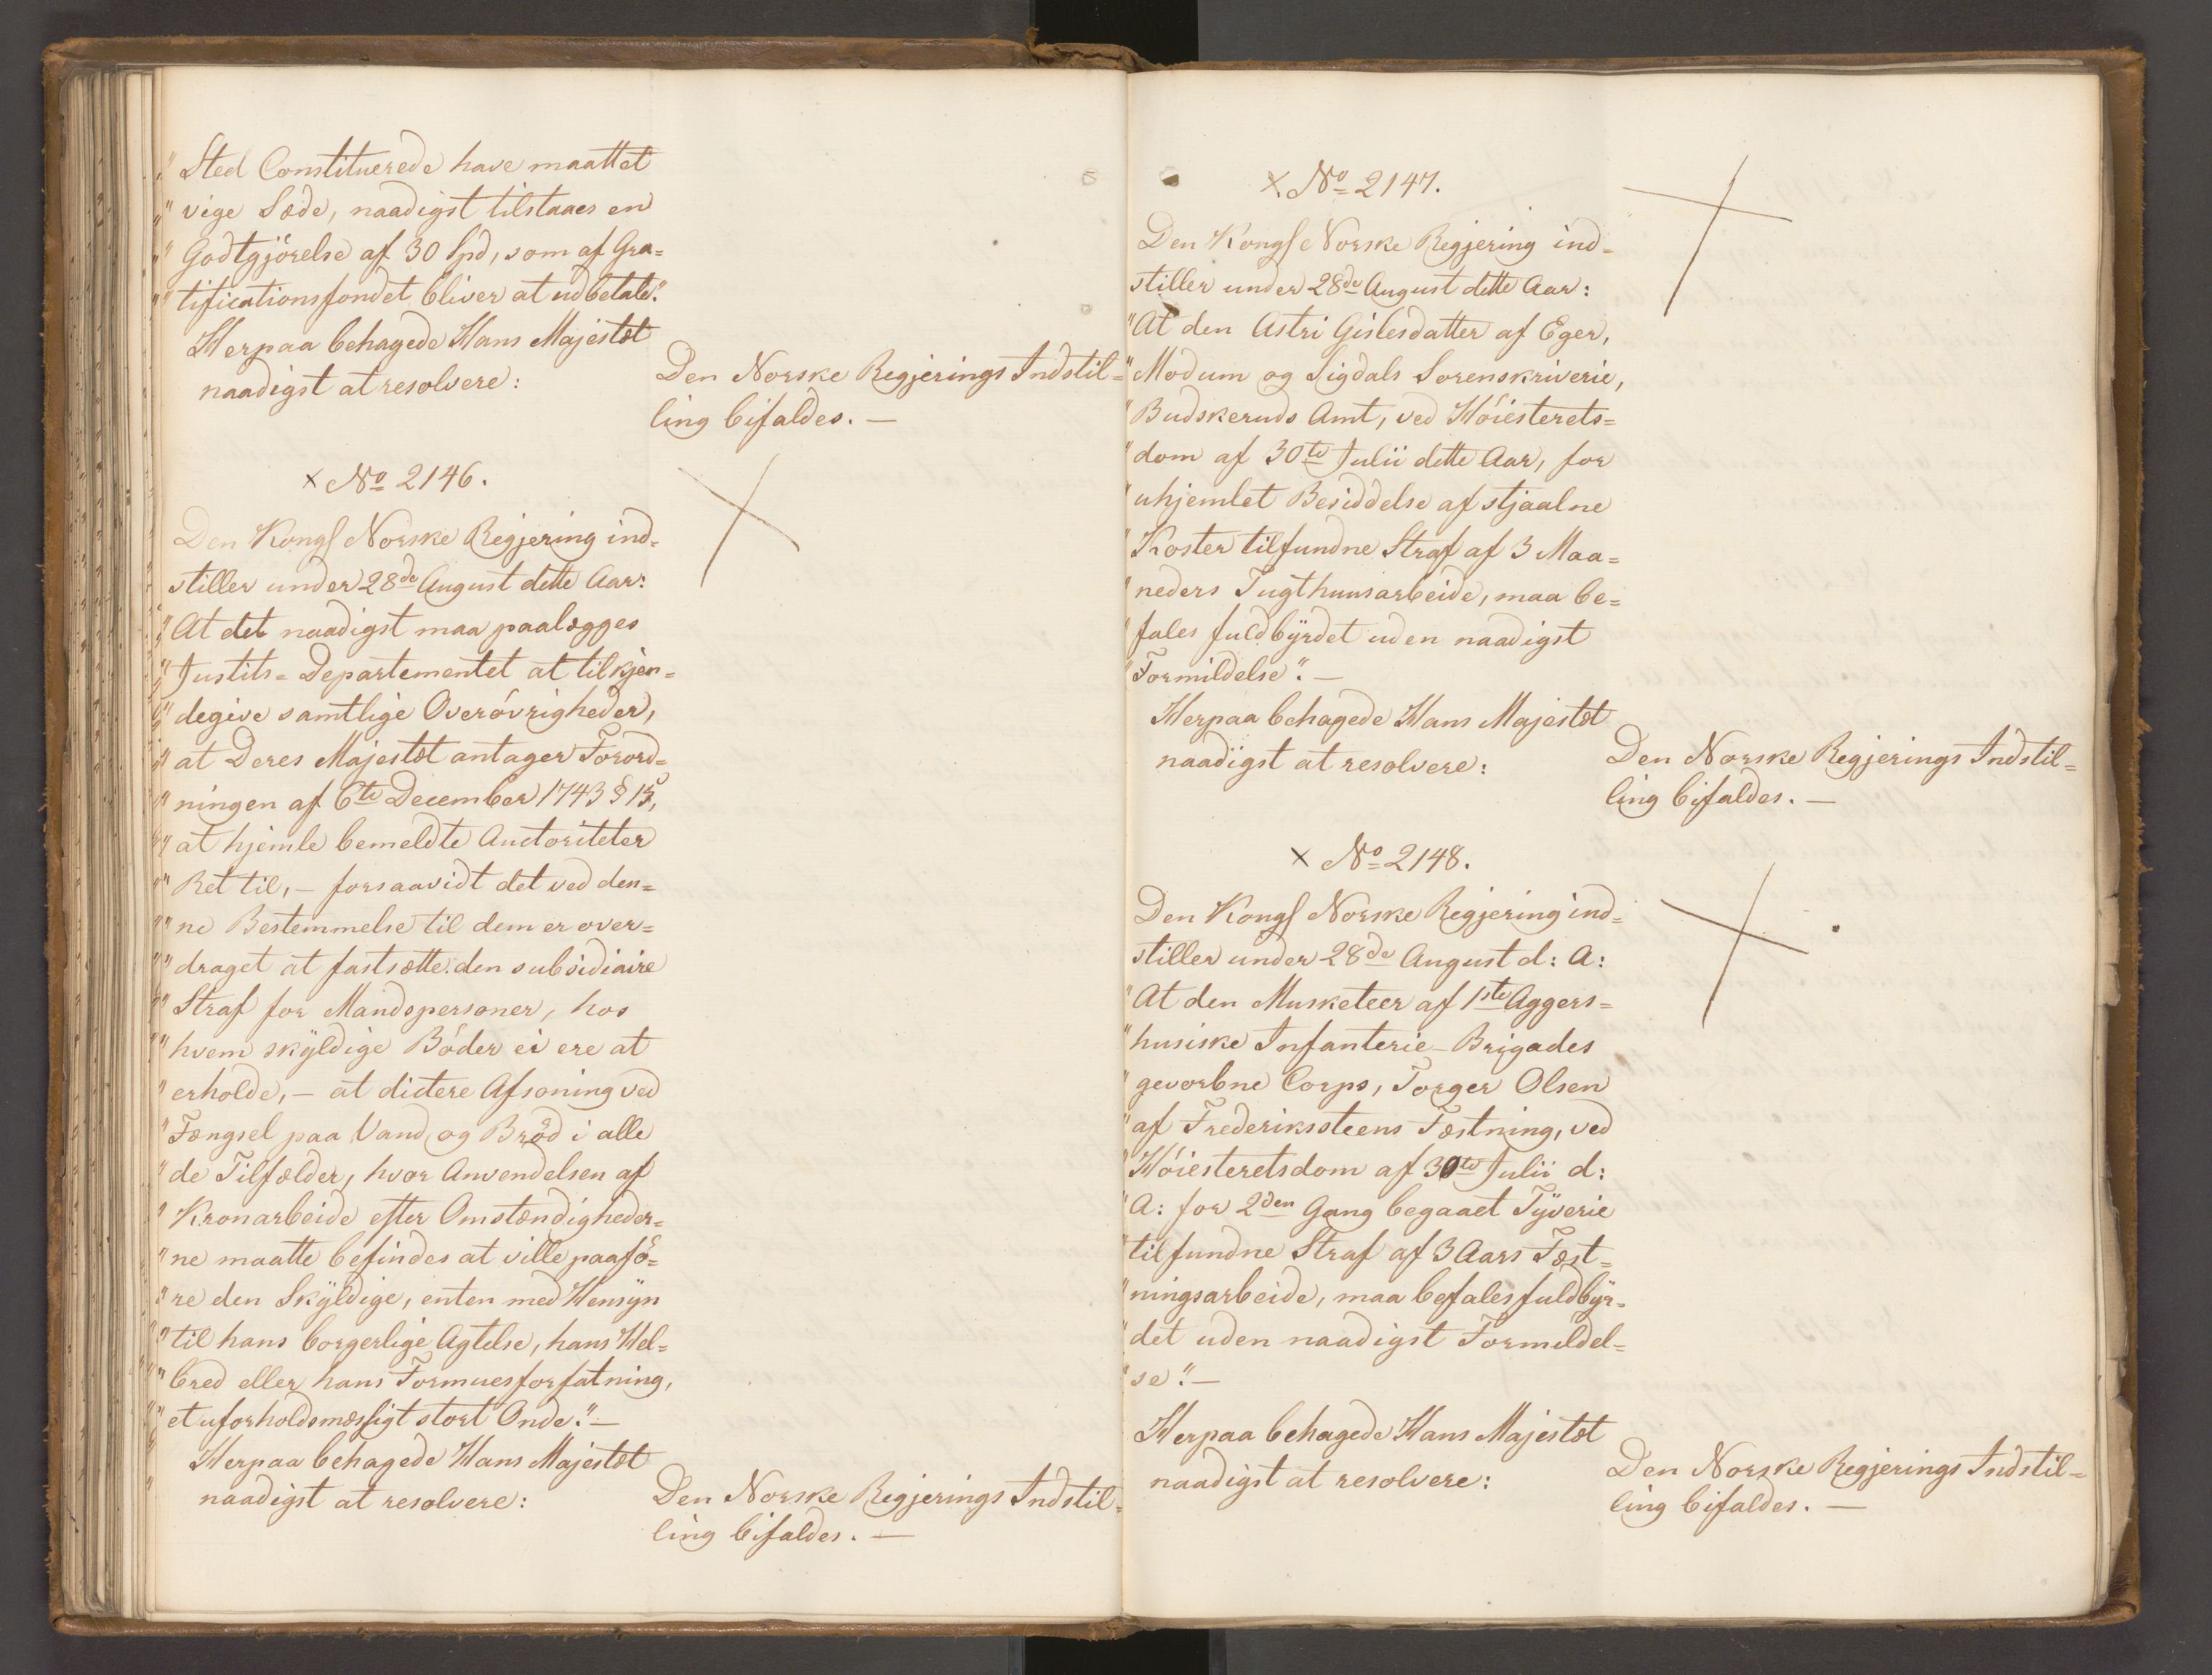 " Sted Constituerede have maattet
" vige Sæde, naadigst tilstaaes en
" Godtgjörelse af 30 Spd, som af Gra=
" tificationsfondet bliver at udbetale."
Herpaa behagede Hans Majestæt
naadigst at resolvere:
Den Norske Regjerings Indstil=
ling bifaldes. —
× No 2146.
Den Kongl Norske Regjering ind=
stiller under 28de August dette Aar:
" At det naadigst maa paalægges
" Justits=Departementet at tilkjen=
" degive samtlige Overövrigheder,
" at Deres Majestæt antager Forord=
" ningen af 6te December 1743 § 15,
" at hjemle bemeldte Auctoriteter
" Ret til, — forsaavidt det ved den=
" ne Bestemmelse til dem er over=
" draget at fastsætte den subsidiaire
" Straf for Mandspersoner, hos
" hvem skÿldige Böder ei ere at
" erholde, — at dictere Afsoning ved
" Fængsel paa Vand og Bröd i alle
" de Tilfælder, hvor Anvendelsen af
" Kronarbeide efter Omstændigheder=
" ne maatte befindes at ville paafö=
" re den Skÿldige, enten med Hensÿn
" til hans borgerlige Agtelse, hans Hel=
" bred eller hans Formuesforfatning,
" et uforholdsmæssigt stort Onde." —
Herpaa behagede Hans Majestæt
naadigst at resolvere:
Den Norske Regjerings Indstil=
ling bifaldes. —
× No 2147.
Den Kongl Norske Regjering ind=
stiller under 28de August dette Aar:
" At den Astri Gislesdatter af Eger,
" Modum og Sigdals Sorenskriverie,
" Budskeruds Amt, ved Höiesterets=
" dom af 30te Julii dette Aar, for
" uhjemlet Besiddelse af stjaalne
" Koster tilfundne Straf af 3 Maa=
" neders Tugthuusarbeide, maa be=
" fales fuldbÿrdet uden naadigst
" Formildelse". —
Herpaa behagede Hans Majestæt
naadigst at resolvere:
Den Norske Regjerings Indstil=
ling bifaldes. —
× No 2148.
Den Kongl Norske Regjering ind=
stiller under 28de August d: A:
" At den Musketeer af 1ste Aggers=
" husiske Infanterie-Brigades
" gevorbne Corps, Torger Olsen
" af Frederikssteens Fæstning, ved
" Höiesteretsdom af 30te Julii d:
" A: for 2den Gang begaaet Tÿverie
" tilfundne Straf af 3 Aars Fæst=
" ningsarbeide, maa befales fuldbÿr=
" det uden naadigst Formildel=
" se". —
Herpaa behagede Hans Majestæt
naadigst at resolvere:
Den Norske Regjerings Indstil=
ling bifaldes. —